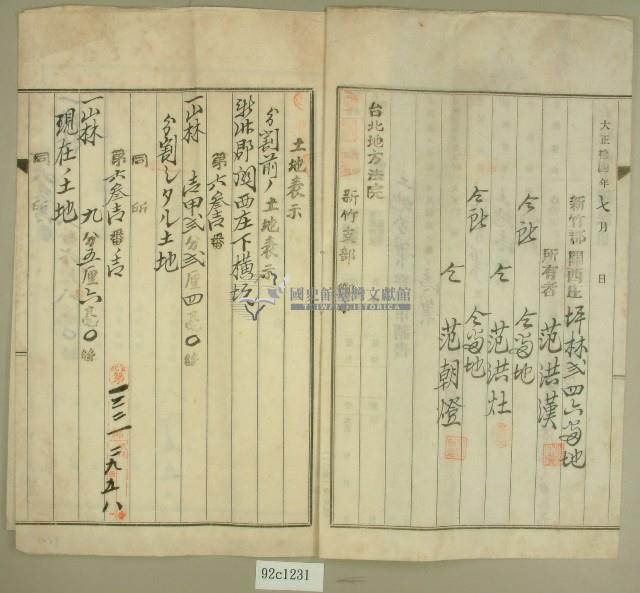 大正拾四年七月 日
新竹郡關西庄坪林弍四六番地
所有者 范洪漢
仝所 仝番地
仝 范洪灶
仝所 仝番地
仝 范朝澄
台北地方法院
新竹支部 御中
土地表示
分割前ノ土地表示
新竹郡關西庄下橫坑
第六叁吉番
一山林 壱甲弍分弍厘四毫〇絲
分割シタル土地
同所
第六叁吉番ノ吉
一山林 九分五厘六毫〇絲
現在ノ土地
同所
國史館臺灣文獻館
TAIWAN HISTORICA
92c1231